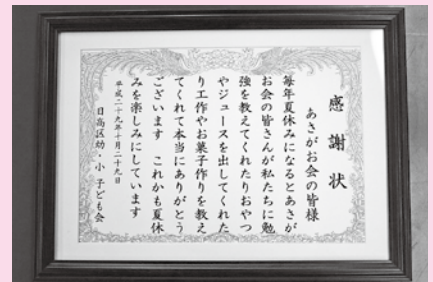 感謝状
あさがお会の皆様
毎年夏休みになるとあさが
お会の皆さんが私たちに勉
強を教えてくれたりおやつ
やジュースを出してくれた
り工作やお菓子作りを教え
てくれて本当にありがとう
ございます　これかも夏休
みを楽しみにしています
平成二十九年十月二十九日
日高区幼・小 子ども会